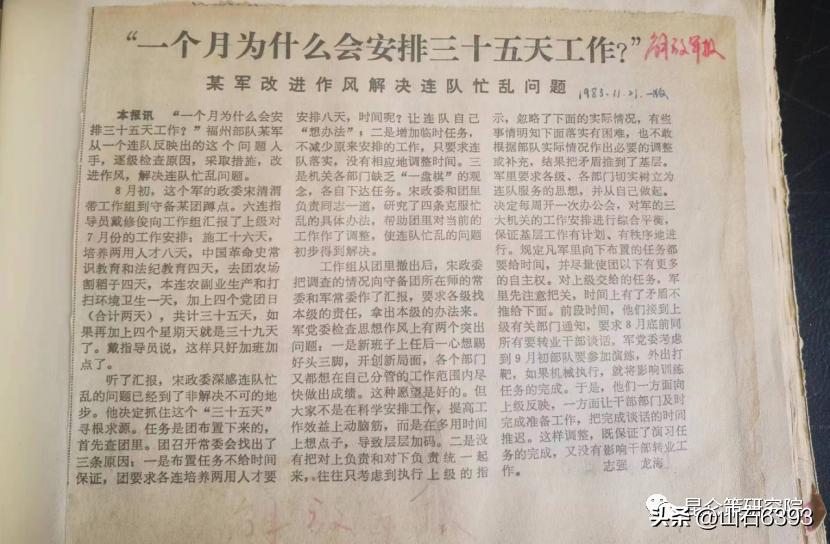 “一个月为什么会安排三十五天工作？”
解放军报
某军改进作风解决连队忙乱问题
1983.11.21.一版
本报讯 “一个月为什么会安
排三十五天工作？”福州部队某军
从一个连队反映出的这个问题入
手，逐级检查原因，采取措施，改
进作风，解决连队忙乱问题。
8月初，这个军的政委宋清渭
带工作组到守备某团蹲点。六连指
导员戴修俊向工作组汇报了上级对
7月份的工作安排：施工十六天，
培养两用人才八天，中国革命史常
识教育和法纪教育四天，去团农场
割稻子四天，本连农副业生产和打
扫环境卫生一天，加上四个党团日
（合计两天），共计三十五天，如
果再加上四个星期天就是三十九天
了。戴指导员说，这样只好加班加
点了。
听了汇报，宋政委深感连队忙
乱的问题已经到了非解决不可的地
步。他决定抓住这个“三十五天”
寻根求源。任务是团布置下来的，
首先查团里。团召开常委会找出了
三条原因：一是布置任务不给时间
保证，团要求各连培养两用人才要
安排八天，时间呢？让连队自己
“想办法”；二是增加临时任务，
不减少原来安排的工作，只要求连
队落实，没有相应地调整时间。三
是机关各部门缺乏“一盘棋”的观
念，各自下达任务。宋政委和团里
负责同志一道，研究了四条克服忙
乱的具体办法，帮助团里对当前的
工作作了调整，使连队忙乱的问题
初步得到解决。
工作组从团里撤出后，宋政委
把调查的情况向守备团所在师的常
委和军常委作了汇报，要求各级找
本级的责任，拿出本级的办法来。
军党委检查思想作风上有两个突出
问题：一是新班子上任后一心想踢
好头三脚，开创新局面，各个部门
又都想在自己分管的工作范围内尽
快做出成绩。这种愿望是好的。但
大家不是在科学安排工作，提高工
作效益上动脑筋，而是在多用时间
上想点子，导致层层加码。二是没
有把对上负责和对下负责统一起
来，往往只考虑到执行上级的指
示，忽略了下面的实际情况，有些
事情明知下面落实有困难，也不敢
根据部队实际情况作出必要的调整
或补充，结果把矛盾推到了基层。
军里要求各级、各部门切实树立为
连队服务的思想，并从自己做起。
决定每周开一次办公会，对军的三
大机关的工作安排进行综合平衡，
保证基层工作有计划、有秩序地进
行。规定凡军里向下布置的任务都
要给时间，并尽量使团以下有更多
的自主权。对上级交给的任务，军
里先注意把关，时间上有了矛盾不
推给下面。前段时间，他们接到上
级有关部门通知，要求8月底前同
所有要转业干部谈话，军党委考虑
到9月初部队要参加演练，外出打
靶，如果机械执行，就将影响训练
任务的完成。于是，他们一方面向
上级反映，一方面让干部部门及时
完成准备工作，把完成谈话的时间
推迟。这样调整，既保证了演习任
务的完成，又没有影响干部转业工
作。
志强 龙海
昆仑策研究院
头条@山石6393